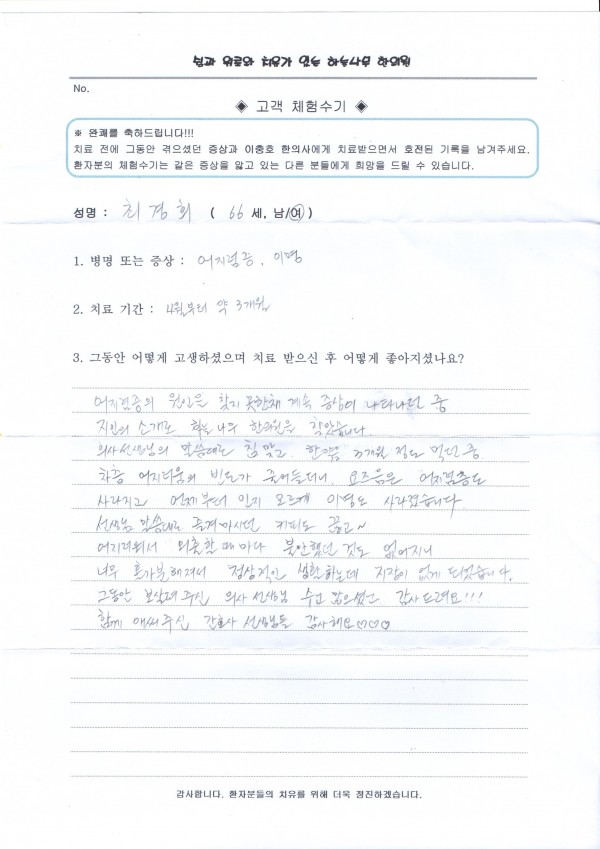 쉼과 위로와 치유가 있는 하늘나무 한의원
No.
◈ 고객 체험수기 ◈
※ 완쾌를 축하드립니다!!!
치료 전에 그동안 겪으셨던 증상과 이충호 한의사에게 치료받으면서 호전된 기록을 남겨주세요.
환자분의 체험수기는 같은 증상을 앓고 있는 다른 분들에게 희망을 드릴 수 있습니다.
성명 : 최경희 ( 66 세, 남/여 )
1. 병명 또는 증상 : 어지럼증, 이명
2. 치료 기간 : 4월부터 약 3개월
3. 그동안 어떻게 고생하셨으며 치료 받으신 후 어떻게 좋아지셨나요?
어지럼증의 원인을 찾지 못한채 계속 증상이 나타나던 중
지인의 소개로 하늘나무 한의원을 찾았습니다.
의사선생님의 말씀대로 침 맞고 한약을 3개월 정도 먹던 중
차츰 어지러움의 빈도가 줄어들더니 요즈음은 어지럼증도
사라지고 언제부터 인지 모르게 이명도 사라졌습니다.
선생님 말씀대로 즐겨마시던 커피도 끊고~
어지러워서 외출할때 마다 불안했던 것도 없어지니
너무 홀가분해져서 정상적인 생활하는데 지장이 없게 되었습니다.
그동안 보살펴주신 의사 선생님 수고 많으셨고 감사드려요!!!
함께 애써주신 간호사 선생님들 감사해요♡♡♡
감사합니다. 환자분들의 치유를 위해 더욱 정진하겠습니다.